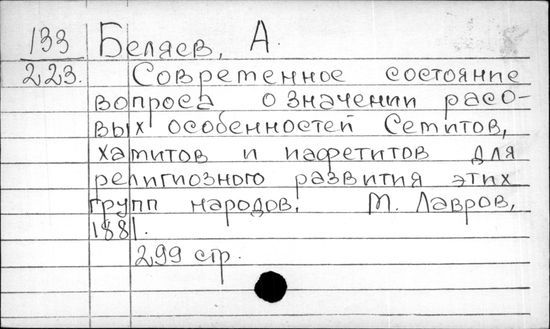 133 Беляев, А.
223. Современное состояние
вопроса о значении расо-
вых особенностей Семитов,
хамитов и иафетитов для
религиозного развития этих
групп народов. М. Лавров,
1881.
299 стр.